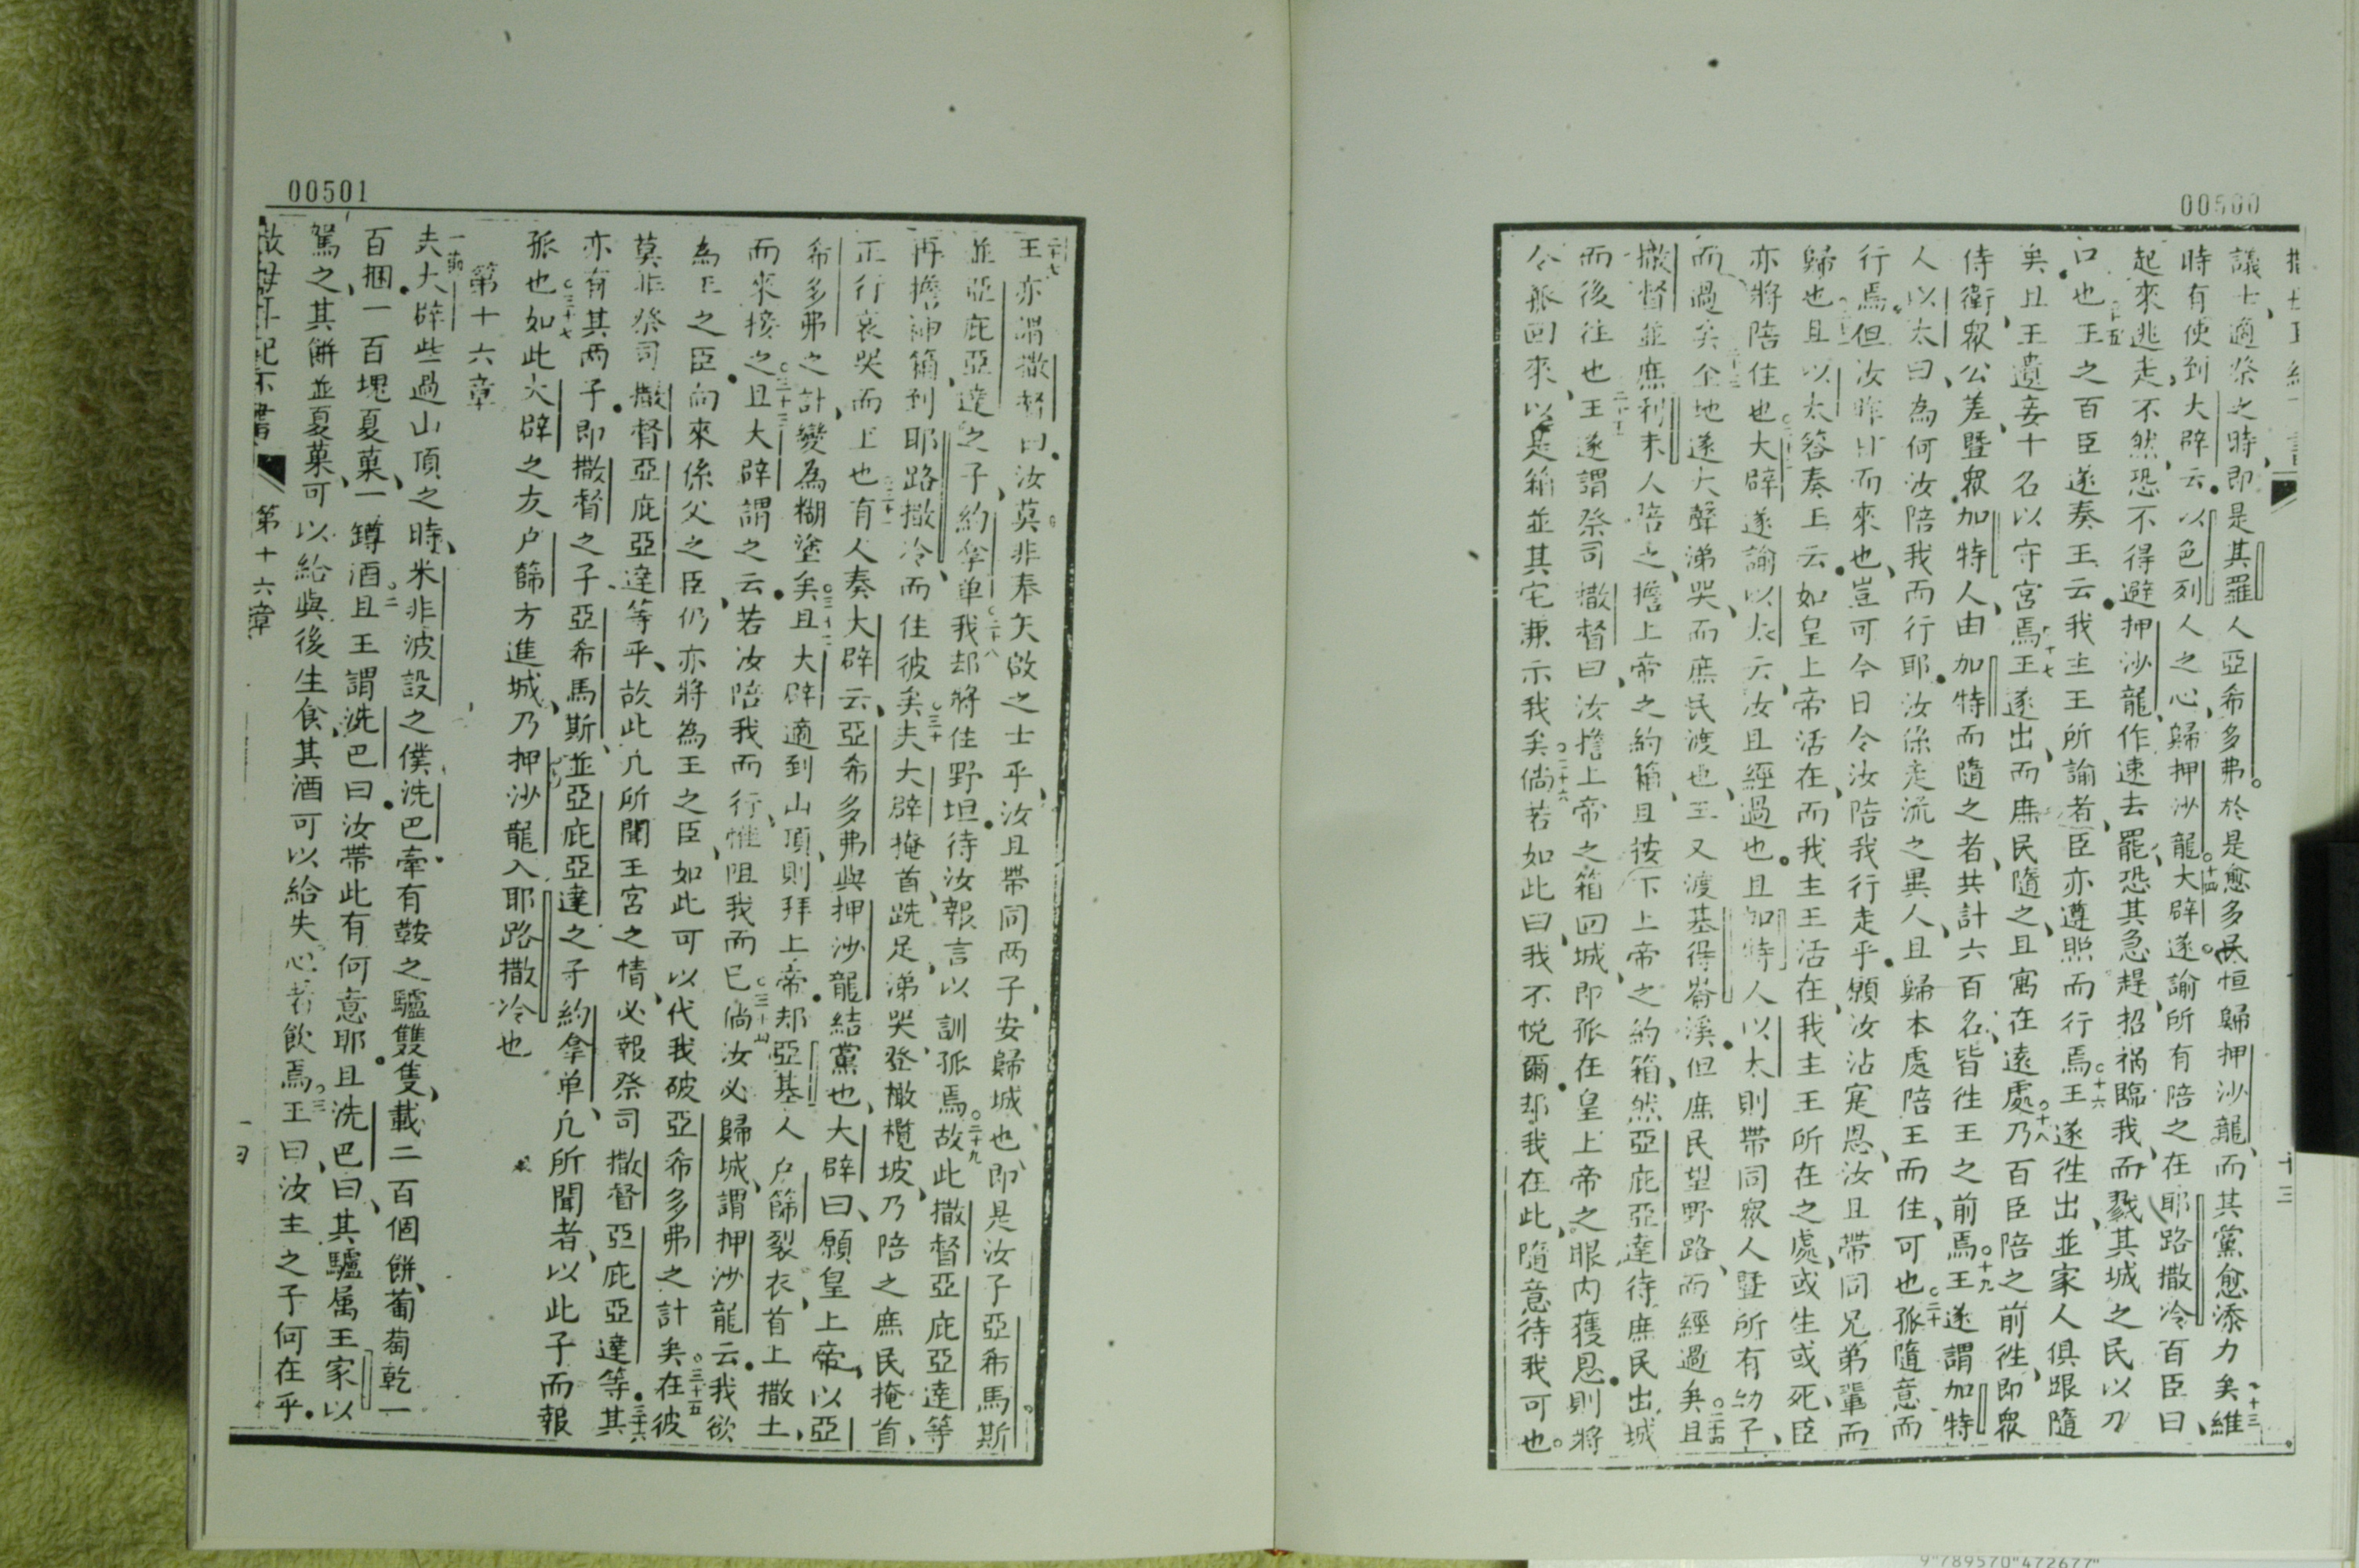 00500
議士、適祭之時、即是其羅人亞希多弗。於是愈多民恒歸押沙龍、而其黨愈添力矣。十三維
時有使到大辟云、以色列人之心、歸押沙龍。十四大辟遂諭所有陪之在耶路撒冷百臣曰、
起來逃走、不然恐不得避押沙龍、作速去罷、恐其急趕招禍臨我、而戮其城之民以刀
口也。十五王之百臣遂奏王云、我主王所諭者、臣亦遵照而行焉。十六王遂徃出、並家人俱跟隨
矣。且王遺妾十名以守宮焉。十七王遂出、而庶民隨之、且寓在遠處。十八乃百臣陪之前徃、即眾
侍衛、眾公差、暨眾加特人、由加特而隨之者、共計六百名、皆徃王之前焉。十九王遂謂加特
人以太曰、為何汝陪我而行耶、汝係走流之異人、且歸本處陪王而住、可也。二十孤隨意而
行焉、但汝昨日而來也、豈可今日令汝陪我行走乎、願汝沾寔恩、汝且帶同兄弟輩而
歸也。且以太答奏王云、如皇上帝活在、而我主王活在、我主王所在之處、或生或死、臣
亦將陪住也。大辟遂諭以太云、汝且經過也。且加特人以太則帶同眾人暨所有幼子、
而過矣。二十三全地遂大聲涕哭、而庶民渡也、王又渡基得崙溪、但庶民望野路、而經過矣。二十四且
撒督並庶利未人陪之、擔上帝之約箱、且按下上帝之約箱、然亞庇亞達待庶民出城
而後往也。二十五王遂謂祭司撒督曰、汝擔上帝之箱回城、即孤在皇上帝之眼内獲恩、則將
令孤回來、以是箱並其宅兼示我矣。二十六倘若如此曰、我不悅爾、却我在此、隨意待我可也。
十三
00501
二十七王亦謂撒督曰、汝莫非奉矢啟之士乎、汝且帶同兩子、安歸城也、即是汝子亞希馬斯
並亞庇亞達之子、約拿单。二十八我却將住野坦、待汝報言以訓孤焉。二十九故此撒督亞庇亞達等
再擔神箱、到耶路撒冷、而住彼矣。三十夫大辟掩首、跣足、涕哭、登橄欖坡、乃陪之庶民掩首、
正行哀哭而上也。三十一有人奏大辟云、亞希多弗與押沙龍結黨也、大辟曰、願皇上帝、以亞
希多弗之計、變為糊塗矣。三十二且大辟適到山頂、則拜上帝、却亞基人户篩裂衣、首上撒土、
而來接之。三十三且大辟謂之云、若汝陪我而行、惟阻我而已。三十四倘汝必歸城、謂押沙龍云、我欲
為王之臣、向來係父之臣、仍亦將為王之臣、如此可以代我破亞希多弗之計矣。三十五在彼
莫非祭司撒督亞庇亞達等乎、故此凢所聞王宮之情、必報祭司撒督亞庇亞達等。三十六其
亦有其兩子、即撒督之子亞希馬斯、並亞庇亞達之子約拿单、凢所聞者、以此子而報
孤也。三十七如此大辟之友户篩方進城、乃押沙龍入耶路撒冷也
第十六章
一節夫大辟些過山頂之時、米非波設之僕洗巴牽有鞍之驢雙隻、載二百個餅、葡萄乾一
百捆、一百塊夏菓、一罇酒。二且王謂洗巴曰、汝帶此有何意耶。且洗巴曰、其驢属王家以
駕之、其餅並夏菓、可以給與後生食、其酒可以給失心者飲焉。三王曰、汝主之子何在乎。
第十六章
9"789570"472677"